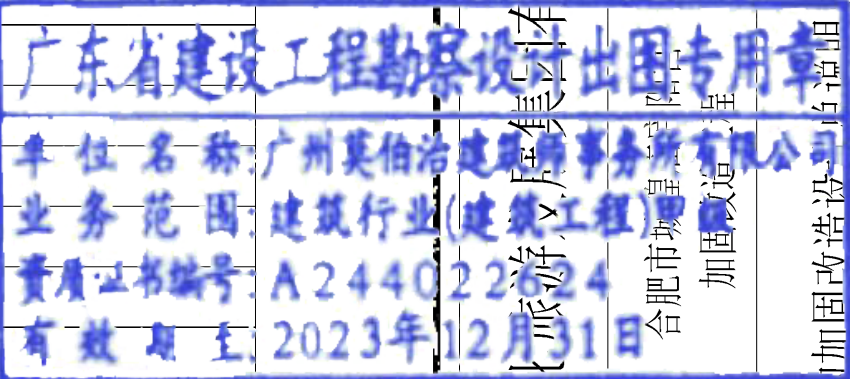 广东省建设工程勘察设计出图专用章
单位名称:广州莫伯治建筑师事务所有限公司
业务范围:建筑行业(建筑工程)甲级
资质证书编号:A244022624
有效期至:2023年12月31日
合肥市城隍
加固改造
加固改造设